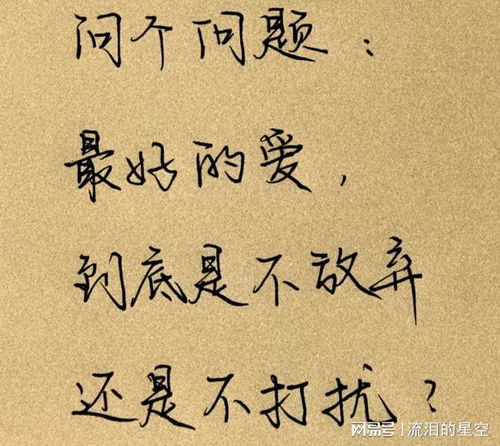 问个问题：
最好的爱，
到底是不放弃
还是不打扰？
搜狐号|流泪的星空